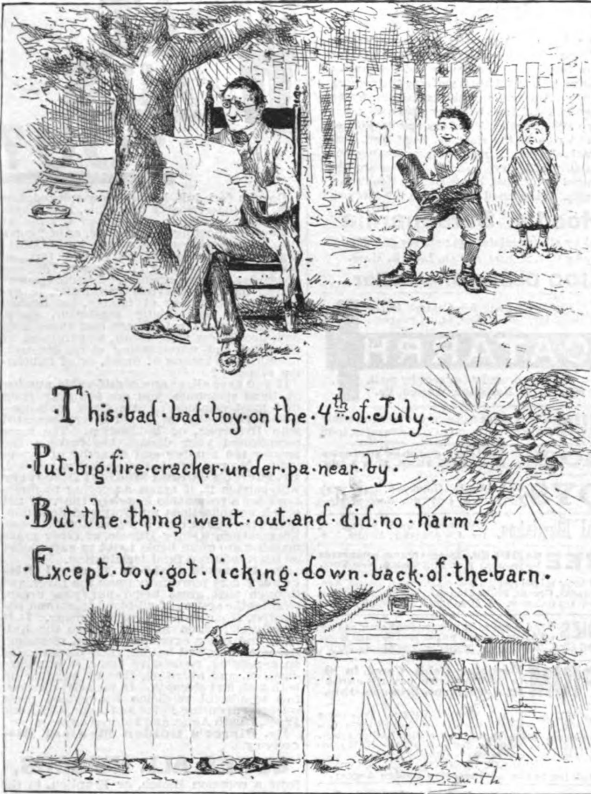 ·This·bad·bad·boy·on·the·4th·of·July·
·Put·big·fire·cracker·under·pa·near·by·
·But·the·thing·went·out·and·did·no·harm·
·Except·boy·got·licking·down·back·of·the·barn·
D.D.Smith